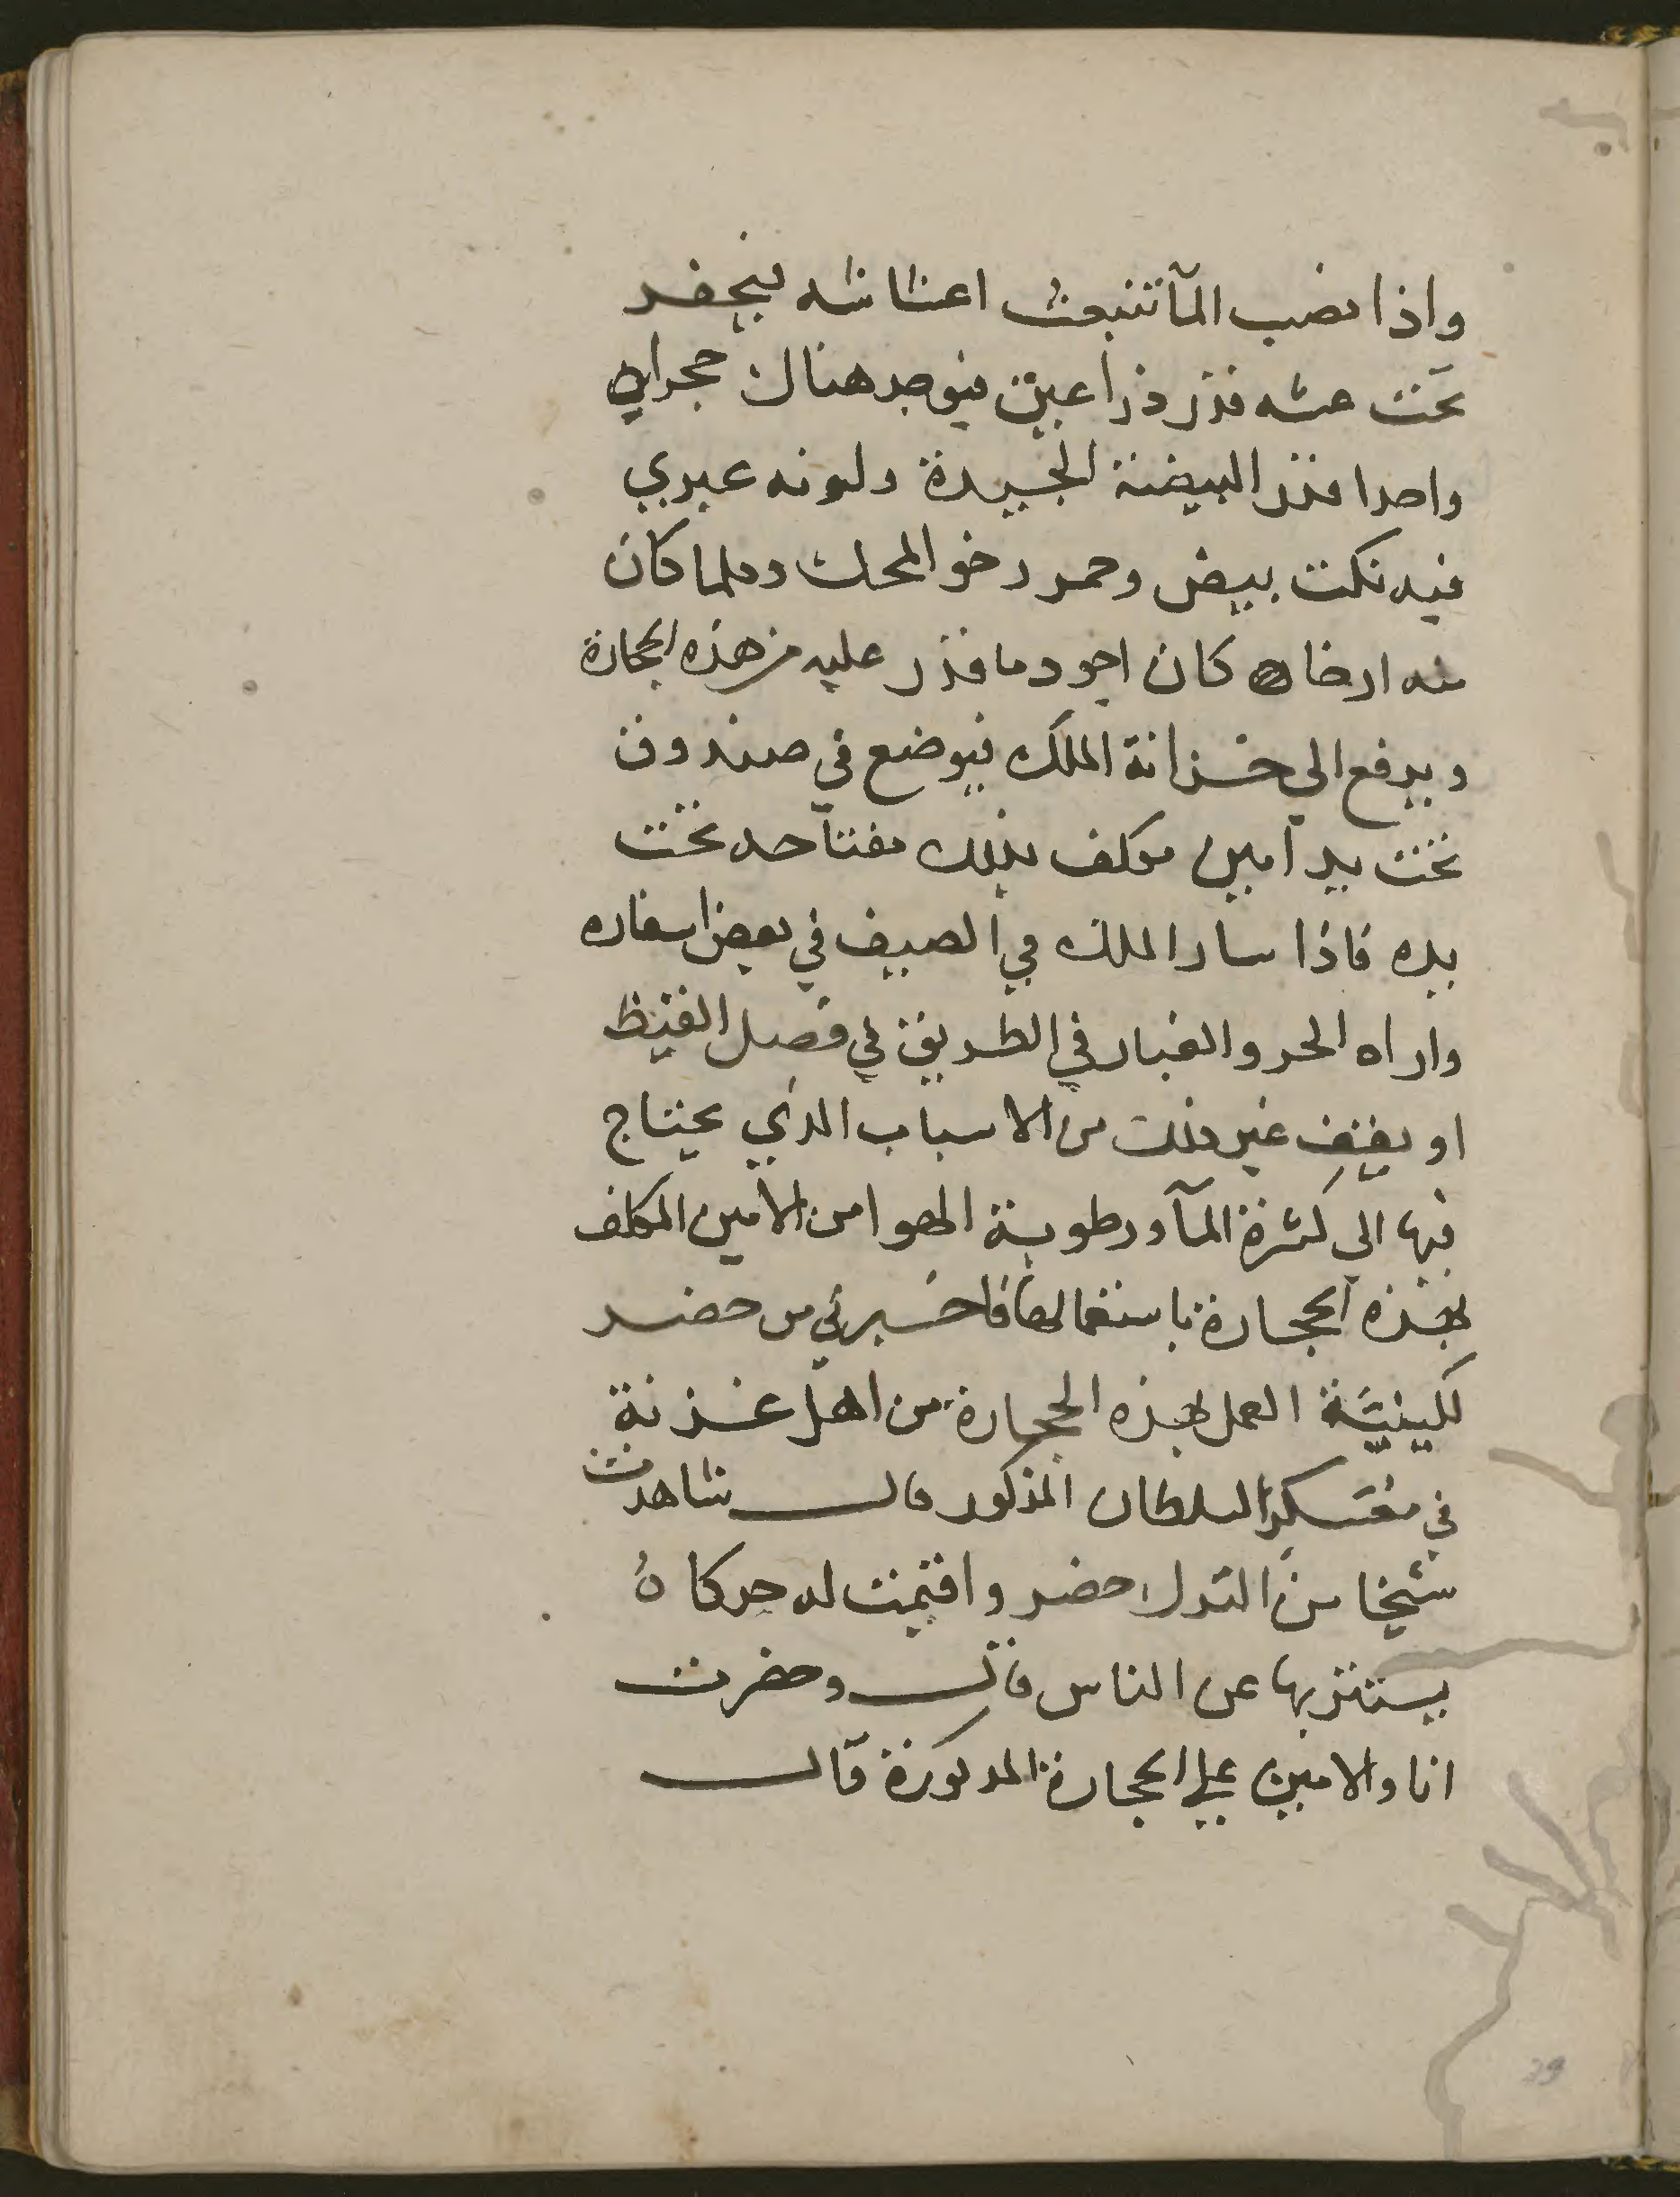 واذا نضب المآ تنبعث اعشاشه فيحفر
تحت عشه قدر ذراعين فيوجد هناك حجران
واحدا قدر البيضة الجيدة ولونه غبري
فيه نكت بيض وحمر رخو المحك وكلما كان
منه ارخا كان اجود ما قدر عليه من هذه الحجارة
ويرفع الي خزانة الملك فيوضع في صندوق
تحت يد امين موكف بذلك مفتاحه تحت
يده فاذا سار الملك في الصيف في بعض اسفاره
واراه الحر والغبار في الطريق في فصل القيظ
او يقف غير ذلك من الاسباب الذي يحتاج
فيها الي كثرة المآ ورطوبة الهوا من الامين المكلف
بهذه الحجارة باستعمالها فاخبرني من حضر
لكيفيّة العمل بهذه الحجارة من اهل غزنة
في معسكر السلطان المذكور قال شاهدت
شيخا من الترك حضر واقيمت له خركاهُ
يستتر بها عن الناس قال وحضرت
انا والامين علي الحجارة المذكورة قال
39